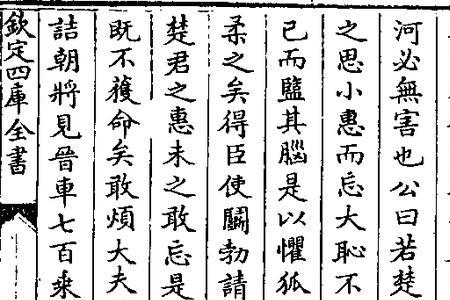 河必無害也公曰若楚
之思小惠而忘大恥不
己而盬其腦是以懼狐
柔之矣得臣使鬭勃請
楚君之惠未之敢忘是
既不獲命矣敢煩大夫
詰朝將見晉車七百乗
欽定四庫全書